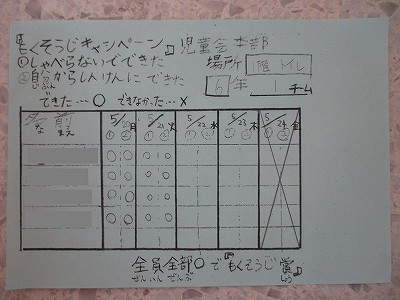 『もくそうじキャンペーン』児童会本部
①しゃべらないでできた
②自分からしんけんにできた
じぶん
場所 1階 トイレ
6年 1チーム
できた…○ できなかった…×
名前 5/20月 5/21火 5/22水 5/23木 5/24金
な まえ ① ② ① ② ① ② ① ② ① ②
○ ○ ○ ○
○ ○ ○ ○
○ ○ ○ ○
○ ○ ○ ○
全員全部○で『もくそうじ賞』
ぜんいん ぜんぶ しょう